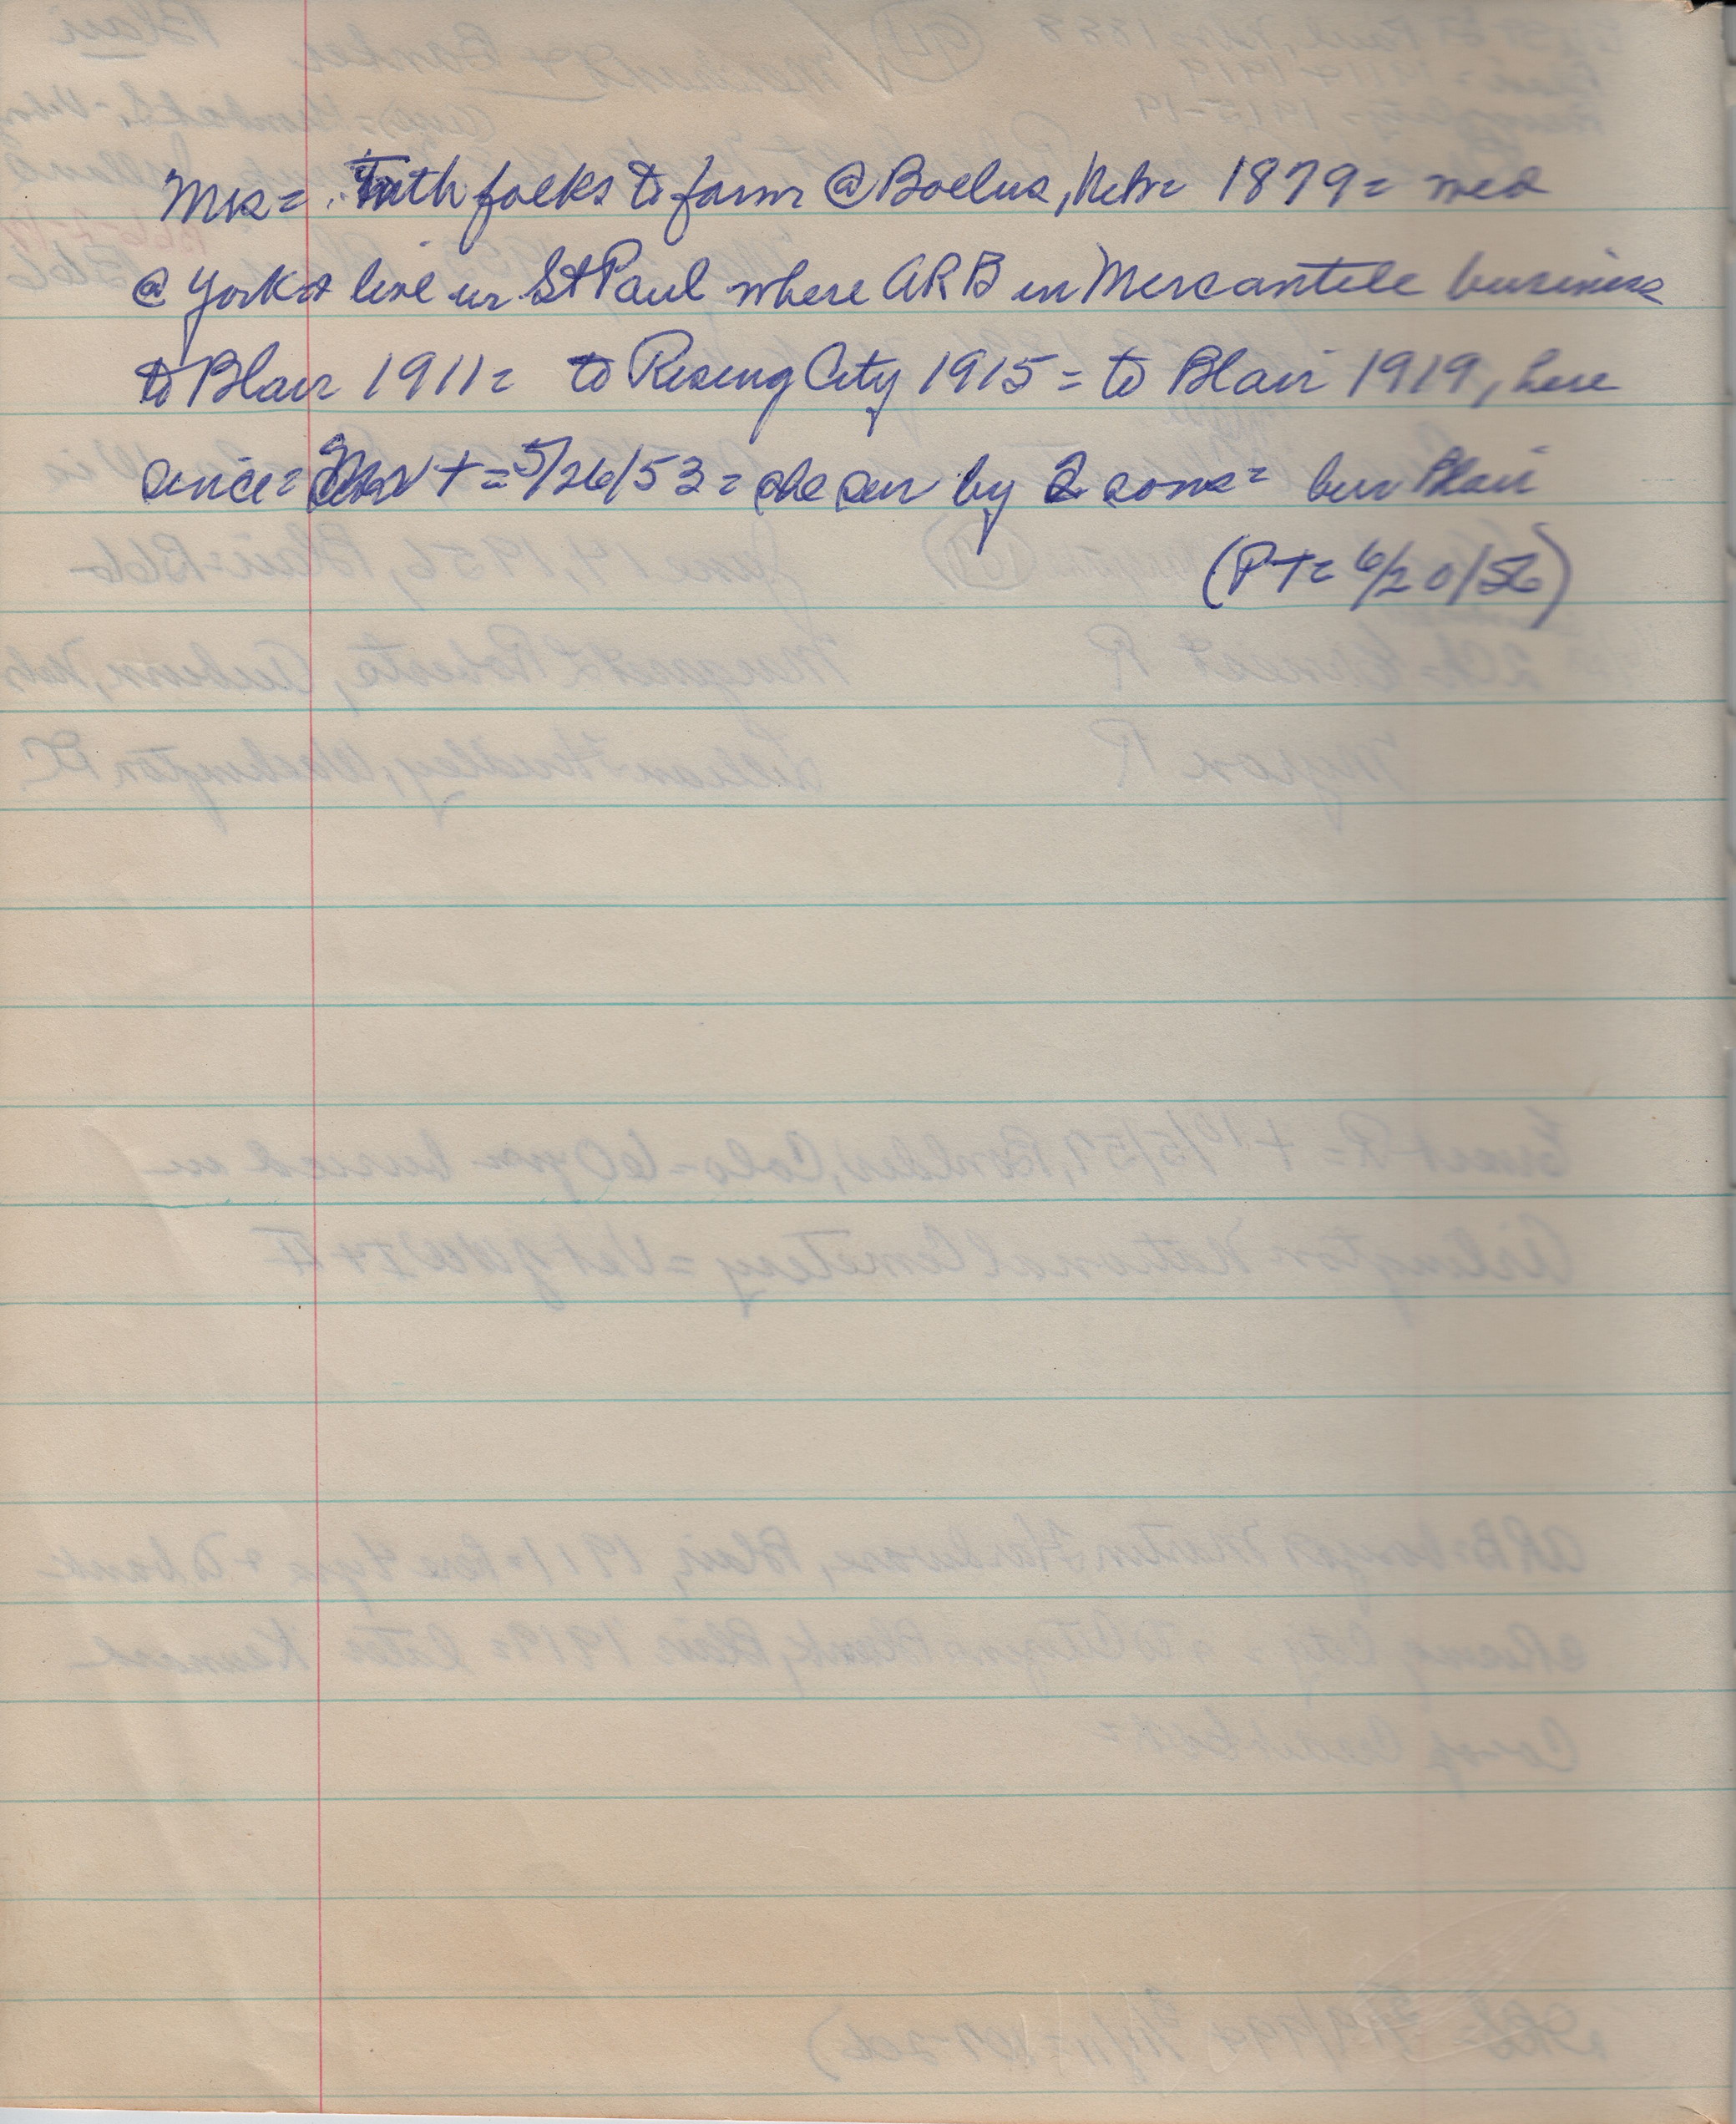 Mrs = with folks to farm @ Boelus, Nebr = 1879 = med
@ York & live in St Paul where ARB in Mercantile business
to Blair 1911 = to Rising City 1915 = to Blair 1919, here
since = + = 5/26/53 = she sur by 2 sons = bur Blair
(PT = 6/20/56)